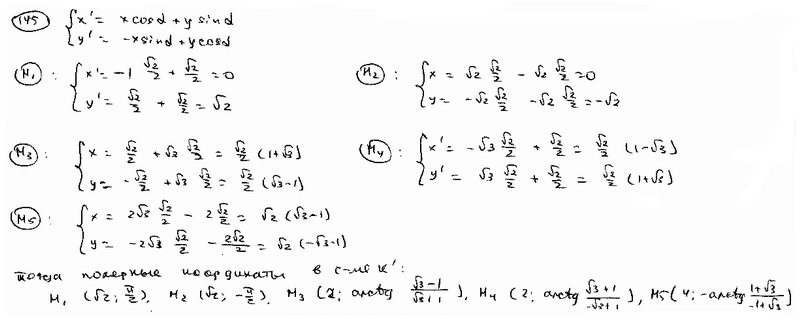 145 { x' = x cosα + y sinα
y' = -x sinα + y cosα
M₁ : { x' = -1 √2/2 + √2/2 = 0
y' = √2/2 + √2/2 = √2
M₂ : { x = √2 √2/2 - √2 √2/2 = 0
y = -√2 √2/2 - √2 √2/2 = -√2
M₃ : { x = √2/2 + √3 √2/2 = √2/2 (1+√3)
y = -√2/2 + √3 √2/2 = √2/2 (√3-1)
M₄ : { x' = -√3 √2/2 + √2/2 = √2/2 (1-√3)
y' = √3 √2/2 + √2/2 = √2/2 (1+√3)
M₅ : { x = 2√3 √2/2 - 2 √2/2 = √2 (√3-1)
y = -2√3 √2/2 - 2√2/2 = √2 (-√3-1)
тогда полярные координаты в с-ме к':
M₁ (√2; π/2), M₂ (√2; -π/2), M₃ (2; arctg (√3-1)/(√3+1)), M₄ (2; arctg (√3+1)/(-√3+1)), M₅ (4; -arctg (1+√3)/(-1+√3))